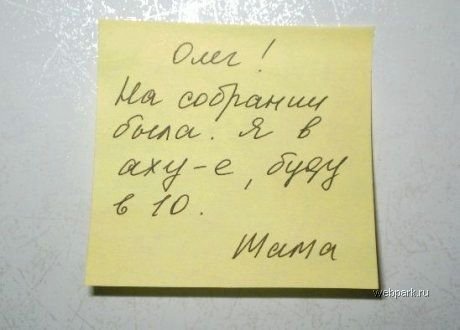 Олег!
На собрании
была. Я в
аху-е, буду
в 10.
Мама
webpark.ru